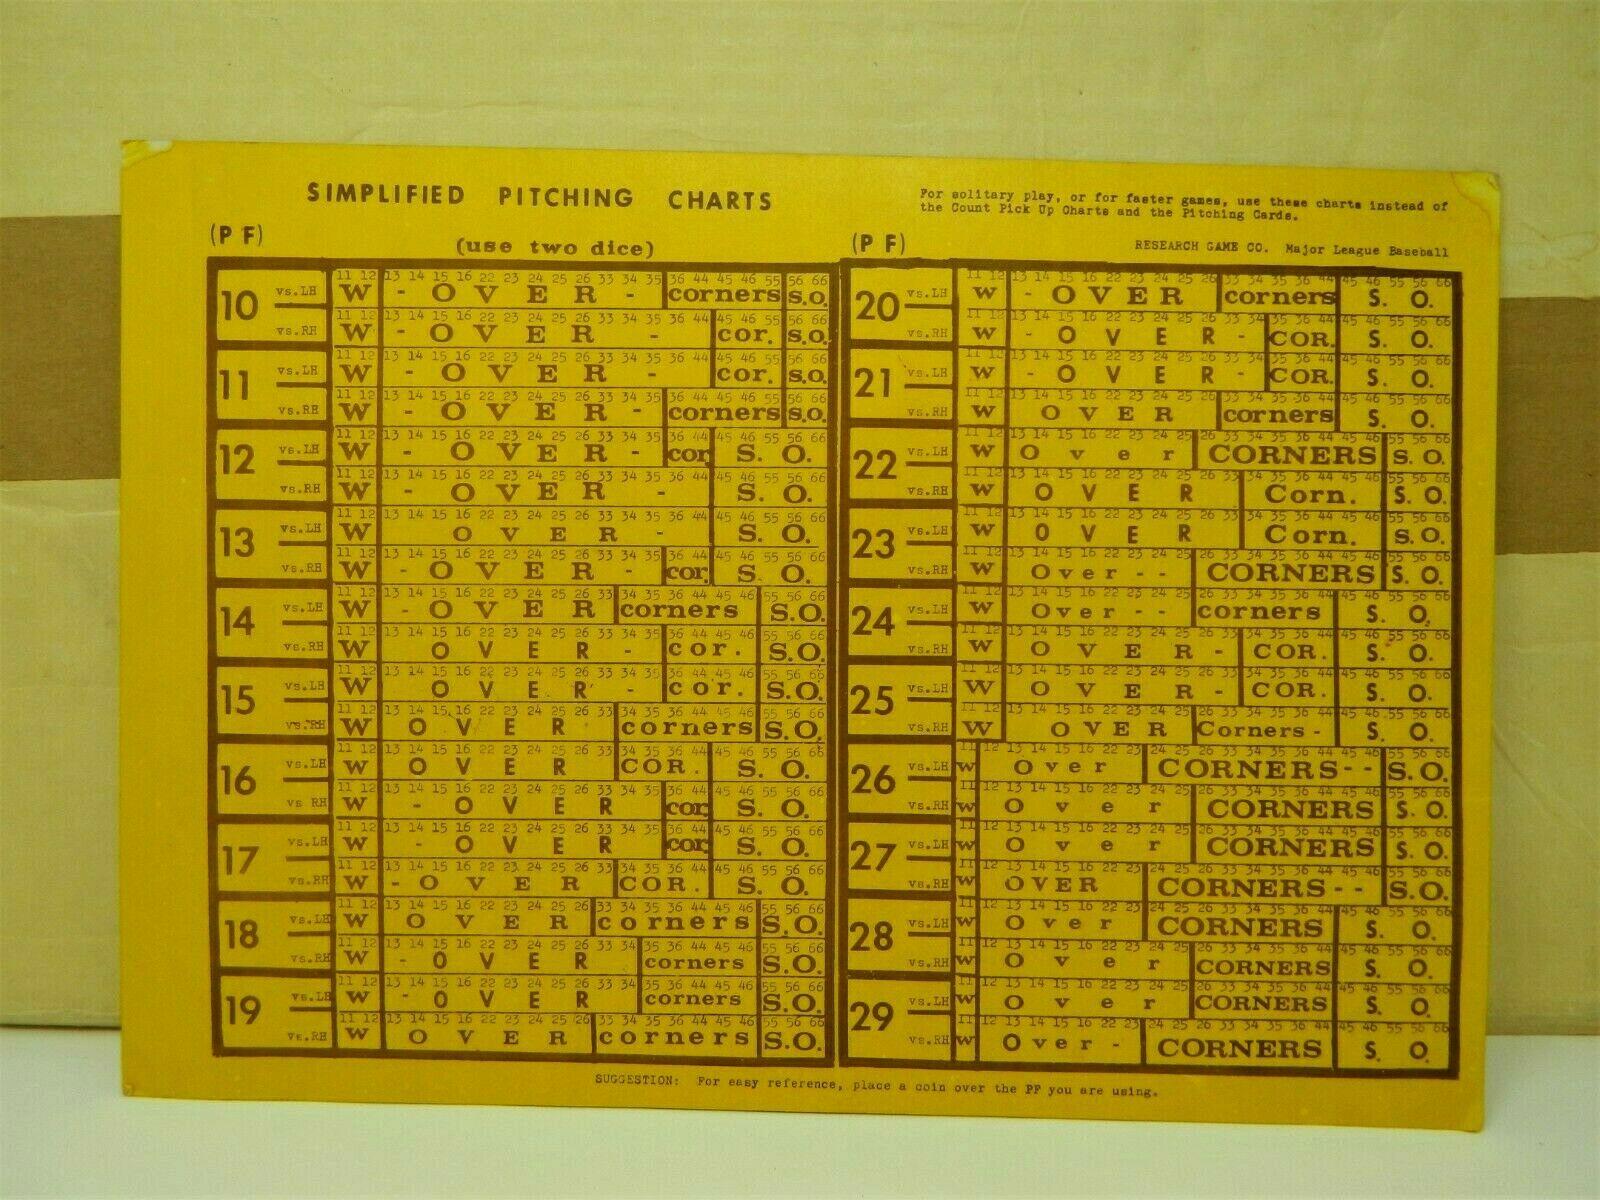 SIMPLIFIED PITCHING CHARTS
For solitary play, or for faster games, use these charts instead of
the Count Pick Up Charts and the Pitching Cards.
(P F)
(use two dice)
(P F)
RESEARCH GAME CO. Major League Baseball
10
vs.LH 11 12 13 14 15 16 22 23 24 25 26 33 34 35 36 44 45 46 55 56 66
W - OVER - corners S.O.
vs.RH 11 12 13 14 15 16 22 23 24 25 26 33 34 35 36 44 45 46 55 56 66
W - OVER - cor. S.O.
11
vs.LH 11 12 13 14 15 16 22 23 24 25 26 33 34 35 36 44 45 46 55 56 66
W - OVER - cor. S.O.
vs.RH 11 12 13 14 15 16 22 23 24 25 26 33 34 35 36 44 45 46 55 56 66
W - OVER - corners S.O.
12
vs.LH 11 12 13 14 15 16 22 23 24 25 26 33 34 35 36 44 45 46 55 56 66
W - OVER - cor. S. O.
vs.RH 11 12 13 14 15 16 22 23 24 25 26 33 34 35 36 44 45 46 55 56 66
W - OVER - S. O.
13
vs.LH 11 12 13 14 15 16 22 23 24 25 26 33 34 35 36 44 45 46 55 56 66
W OVER - S. O.
vs.RH 11 12 13 14 15 16 22 23 24 25 26 33 34 35 36 44 45 46 55 56 66
W - OVER - cor. S. O.
14
vs.LH 11 12 13 14 15 16 22 23 24 25 26 33 34 35 36 44 45 46 55 56 66
W - OVER corners S.O.
vs.RH 11 12 13 14 15 16 22 23 24 25 26 33 34 35 36 44 45 46 55 56 66
W OVER - cor. S.O.
15
vs.LH 11 12 13 14 15 16 22 23 24 25 26 33 34 35 36 44 45 46 55 56 66
W OVER - cor. S.O.
vs.RH 11 12 13 14 15 16 22 23 24 25 26 33 34 35 36 44 45 46 55 56 66
W OVER corners S.O.
16
vs.LH 11 12 13 14 15 16 22 23 24 25 26 33 34 35 36 44 45 46 55 56 66
W OVER COR. S. O.
vs RH 11 12 13 14 15 16 22 23 24 25 26 33 34 35 36 44 45 46 55 56 66
W - OVER cor. S. O.
17
vs.LH 11 12 13 14 15 16 22 23 24 25 26 33 34 35 36 44 45 46 55 56 66
W - OVER cor. S. O.
vs.RH 11 12 13 14 15 16 22 23 24 25 26 33 34 35 36 44 45 46 55 56 66
W - OVER COR. S. O.
18
vs.LH 11 12 13 14 15 16 22 23 24 25 26 33 34 35 36 44 45 46 55 56 66
W OVER corners S.O.
vs.RH 11 12 13 14 15 16 22 23 24 25 26 33 34 35 36 44 45 46 55 56 66
W - OVER corners S.O.
19
vs.LH 11 12 13 14 15 16 22 23 24 25 26 33 34 35 36 44 45 46 55 56 66
W - OVER corners S.O.
vs.RH 11 12 13 14 15 16 22 23 24 25 26 33 34 35 36 44 45 46 55 56 66
W OVER corners S.O.
20
vs.LH 11 12 13 14 15 16 22 23 24 25 26 33 34 35 36 44 45 46 55 56 66
W - OVER corners S. O.
vs.RH 11 12 13 14 15 16 22 23 24 25 26 33 34 35 36 44 45 46 55 56 66
W - OVER - COR. S. O.
21
vs.LH 11 12 13 14 15 16 22 23 24 25 26 33 34 35 36 44 45 46 55 56 66
W - OVER - COR. S. O.
vs.RH 11 12 13 14 15 16 22 23 24 25 26 33 34 35 36 44 45 46 55 56 66
W OVER corners S. O.
22
vs.LH 11 12 13 14 15 16 22 23 24 25 26 33 34 35 36 44 45 46 55 56 66
W Over CORNERS S.O.
vs.RH 11 12 13 14 15 16 22 23 24 25 26 33 34 35 36 44 45 46 55 56 66
W OVER Corn. S.O.
23
vs.LH 11 12 13 14 15 16 22 23 24 25 26 33 34 35 36 44 45 46 55 56 66
W OVER Corn. S.O.
vs.RH 11 12 13 14 15 16 22 23 24 25 26 33 34 35 36 44 45 46 55 56 66
W Over - - CORNERS S.O.
24
vs.LH 11 12 13 14 15 16 22 23 24 25 26 33 34 35 36 44 45 46 55 56 66
W Over - - corners S. O.
vs.RH 11 12 13 14 15 16 22 23 24 25 26 33 34 35 36 44 45 46 55 56 66
W OVER - COR. S. O.
25
vs.LH 11 12 13 14 15 16 22 23 24 25 26 33 34 35 36 44 45 46 55 56 66
W OVER - COR. S. O.
vs.RH 11 12 13 14 15 16 22 23 24 25 26 33 34 35 36 44 45 46 55 56 66
W OVER Corners - S. O.
26
vs.LH 11 12 13 14 15 16 22 23 24 25 26 33 34 35 36 44 45 46 55 56 66
W Over CORNERS - - S.O.
vs.RH 11 12 13 14 15 16 22 23 24 25 26 33 34 35 36 44 45 46 55 56 66
W Over CORNERS S. O.
27
vs.LH 11 12 13 14 15 16 22 23 24 25 26 33 34 35 36 44 45 46 55 56 66
W Over CORNERS S. O.
vs.RH 11 12 13 14 15 16 22 23 24 25 26 33 34 35 36 44 45 46 55 56 66
W OVER CORNERS - - S.O.
28
vs.LH 11 12 13 14 15 16 22 23 24 25 26 33 34 35 36 44 45 46 55 56 66
W Over CORNERS S. O.
vs.RH 11 12 13 14 15 16 22 23 24 25 26 33 34 35 36 44 45 46 55 56 66
W Over CORNERS S. O.
29
vs.LH 11 12 13 14 15 16 22 23 24 25 26 33 34 35 36 44 45 46 55 56 66
W Over CORNERS S. O.
vs.RH 11 12 13 14 15 16 22 23 24 25 26 33 34 35 36 44 45 46 55 56 66
W Over - CORNERS S. O.
SUGGESTION: For easy reference, place a coin over the PF you are using.